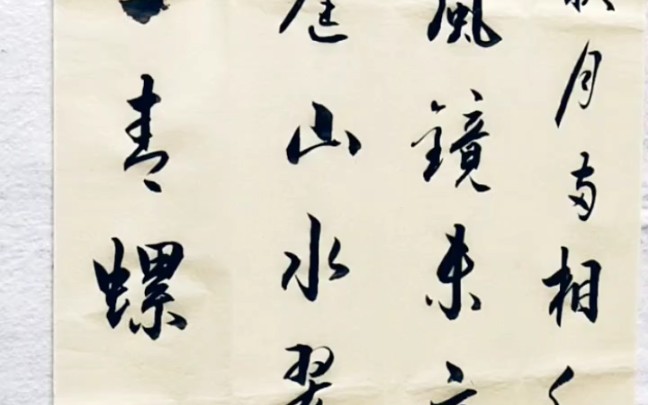 月两相
風鏡未
庭山水翠
青螺